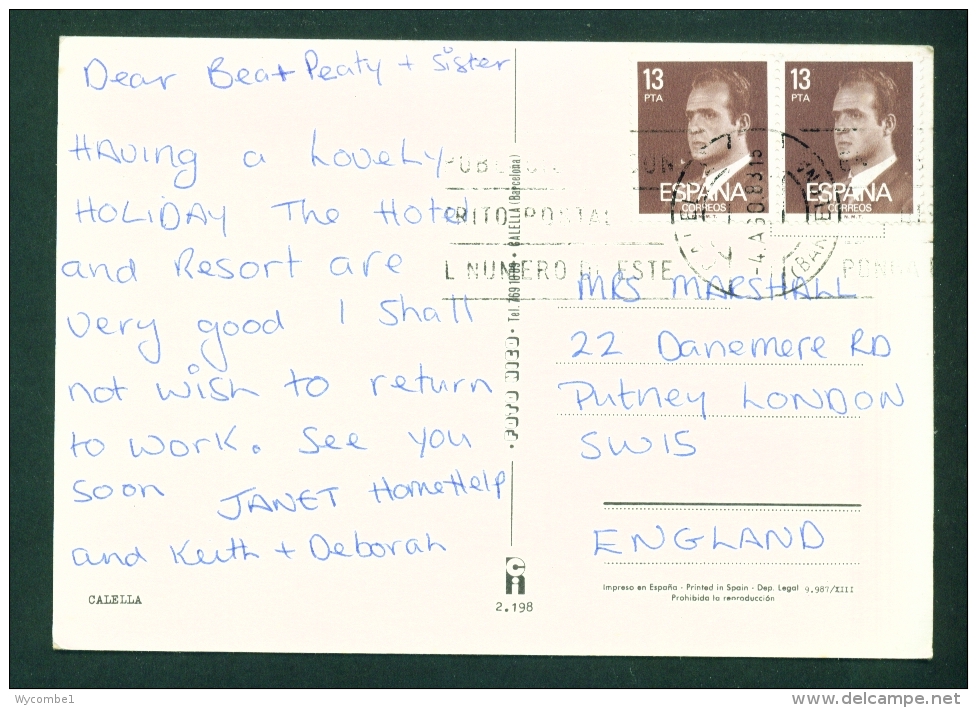 Dear Beat Peaty + Sister
HAVING a LoveLy
HOLIDAY The Hotel
and Resort are
very good I Shall
not wish to return
to work. See you
soon JANET HomeHelp
and Keith + Deborah
CALELLA
CALELLA (Barcelona)
2.198
13
PTA
ESPAÑA
CORREOS
13
PTA
ESPAÑA
CORREOS
L NUMERO DE ESTE
MRS MARSHALL
22 Danemere RD
Putney LONDON
SW15
ENGLAND
Impreso en España - Printed in Spain - Dep. Legal 9.987/XIII
Prohibida la reproducción
Wycombe1
www.delcampe.net